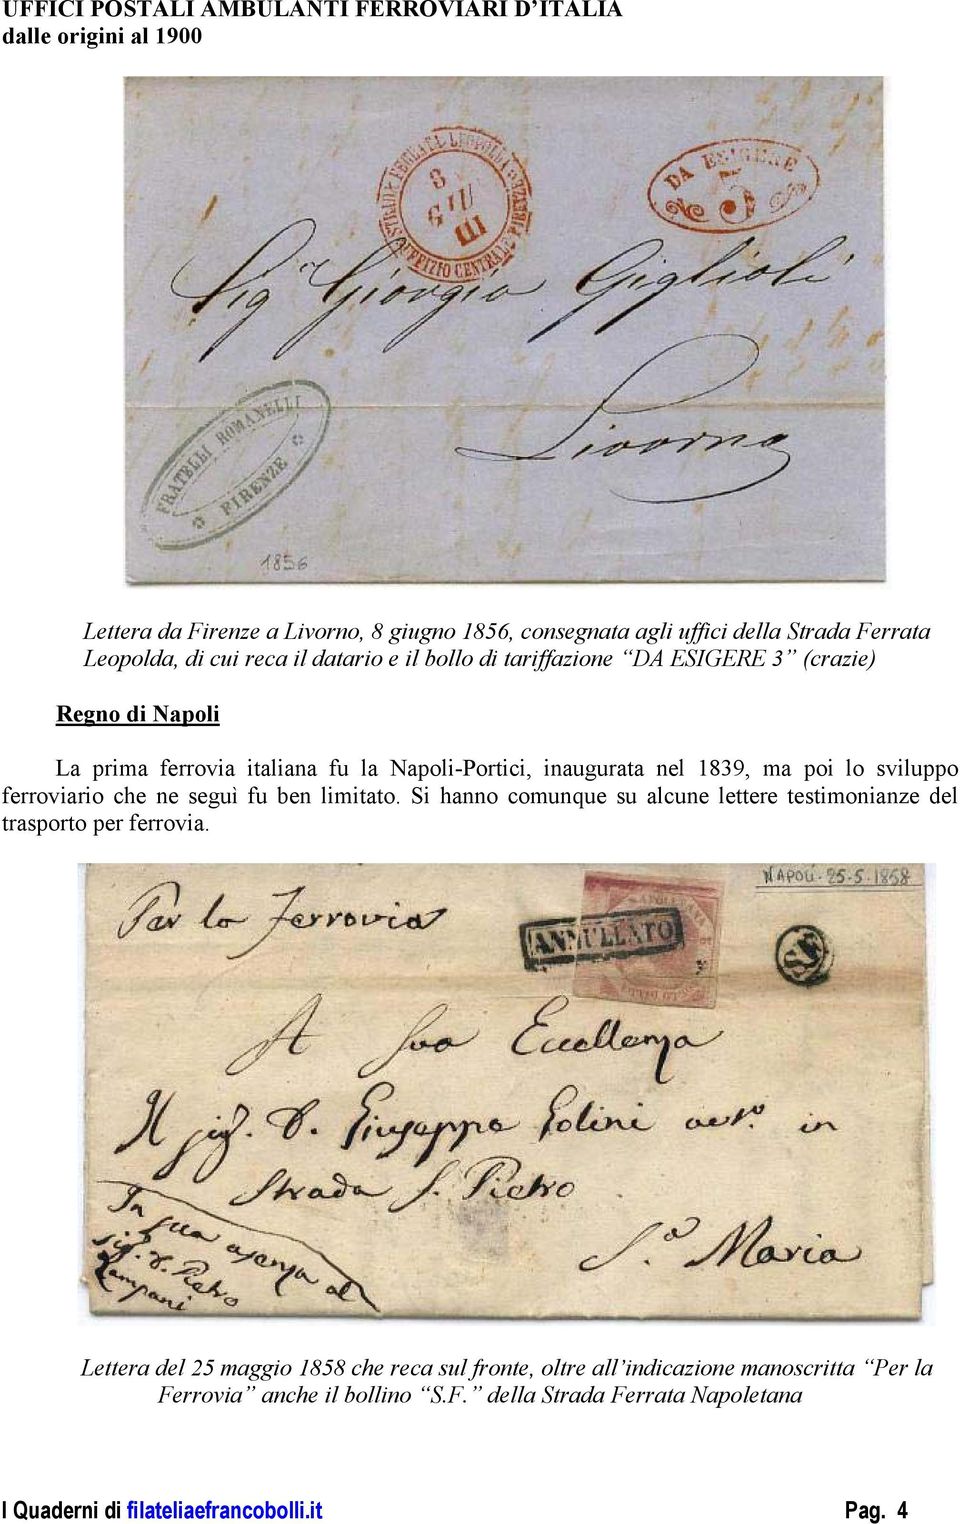 UFFICI POSTALI AMBULANTI FERROVIARI D’ITALIA
dalle origini al 1900
STRADE FERRATE LEOPOLDA
8
GIU
III
UFFIZIO CENTRALE FIRENZE
DA ESIGERE
3
Sig Giorgio Giglioli
Livorno
FRATELLI ROMANELLI
FIRENZE
1856
Lettera da Firenze a Livorno, 8 giugno 1856, consegnata agli uffici della Strada Ferrata
Leopolda, di cui reca il datario e il bollo di tariffazione “DA ESIGERE 3” (crazie)
Regno di Napoli
La prima ferrovia italiana fu la Napoli-Portici, inaugurata nel 1839, ma poi lo sviluppo
ferroviario che ne seguì fu ben limitato. Si hanno comunque su alcune lettere testimonianze del
trasporto per ferrovia.
NAPOLI-25-5-1858
Per la Ferrovia
ANNULLATO
S.F.
A Sua Eccellenza
Il sig. D. Giuseppe in
Strada S. Pietro
S.ª Maria
In sua asenza al
sig. D. Pietro
Zampani
Lettera del 25 maggio 1858 che reca sul fronte, oltre all’indicazione manoscritta “Per la
Ferrovia” anche il bollino “S.F.” della Strada Ferrata Napoletana
I Quaderni di filateliaefrancobolli.it Pag. 4